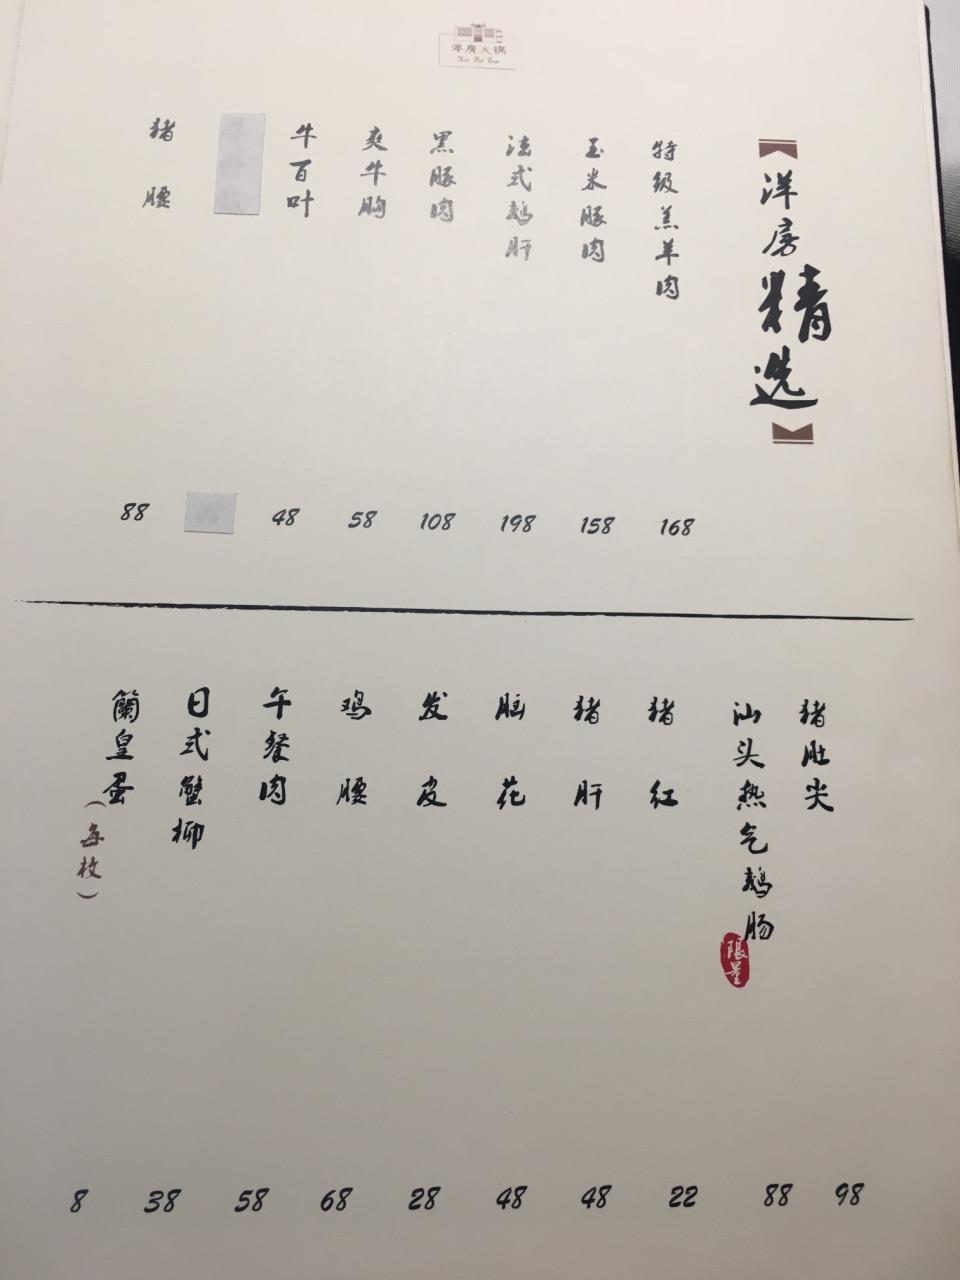 洋房火锅
Hot Pot Town
【洋房精选】
特级羔羊肉
168
玉米豚肉
158
法式鹅肝
198
黑豚肉
108
爽牛胸
58
牛百叶
48
猪腰
88
猪肚尖
98
汕头热气鹅肠
限量
88
猪红
22
猪肝
48
脑花
48
发皮
28
鸡腰
68
午餐肉
58
日式蟹柳
38
蘭皇蛋(每枚)
8